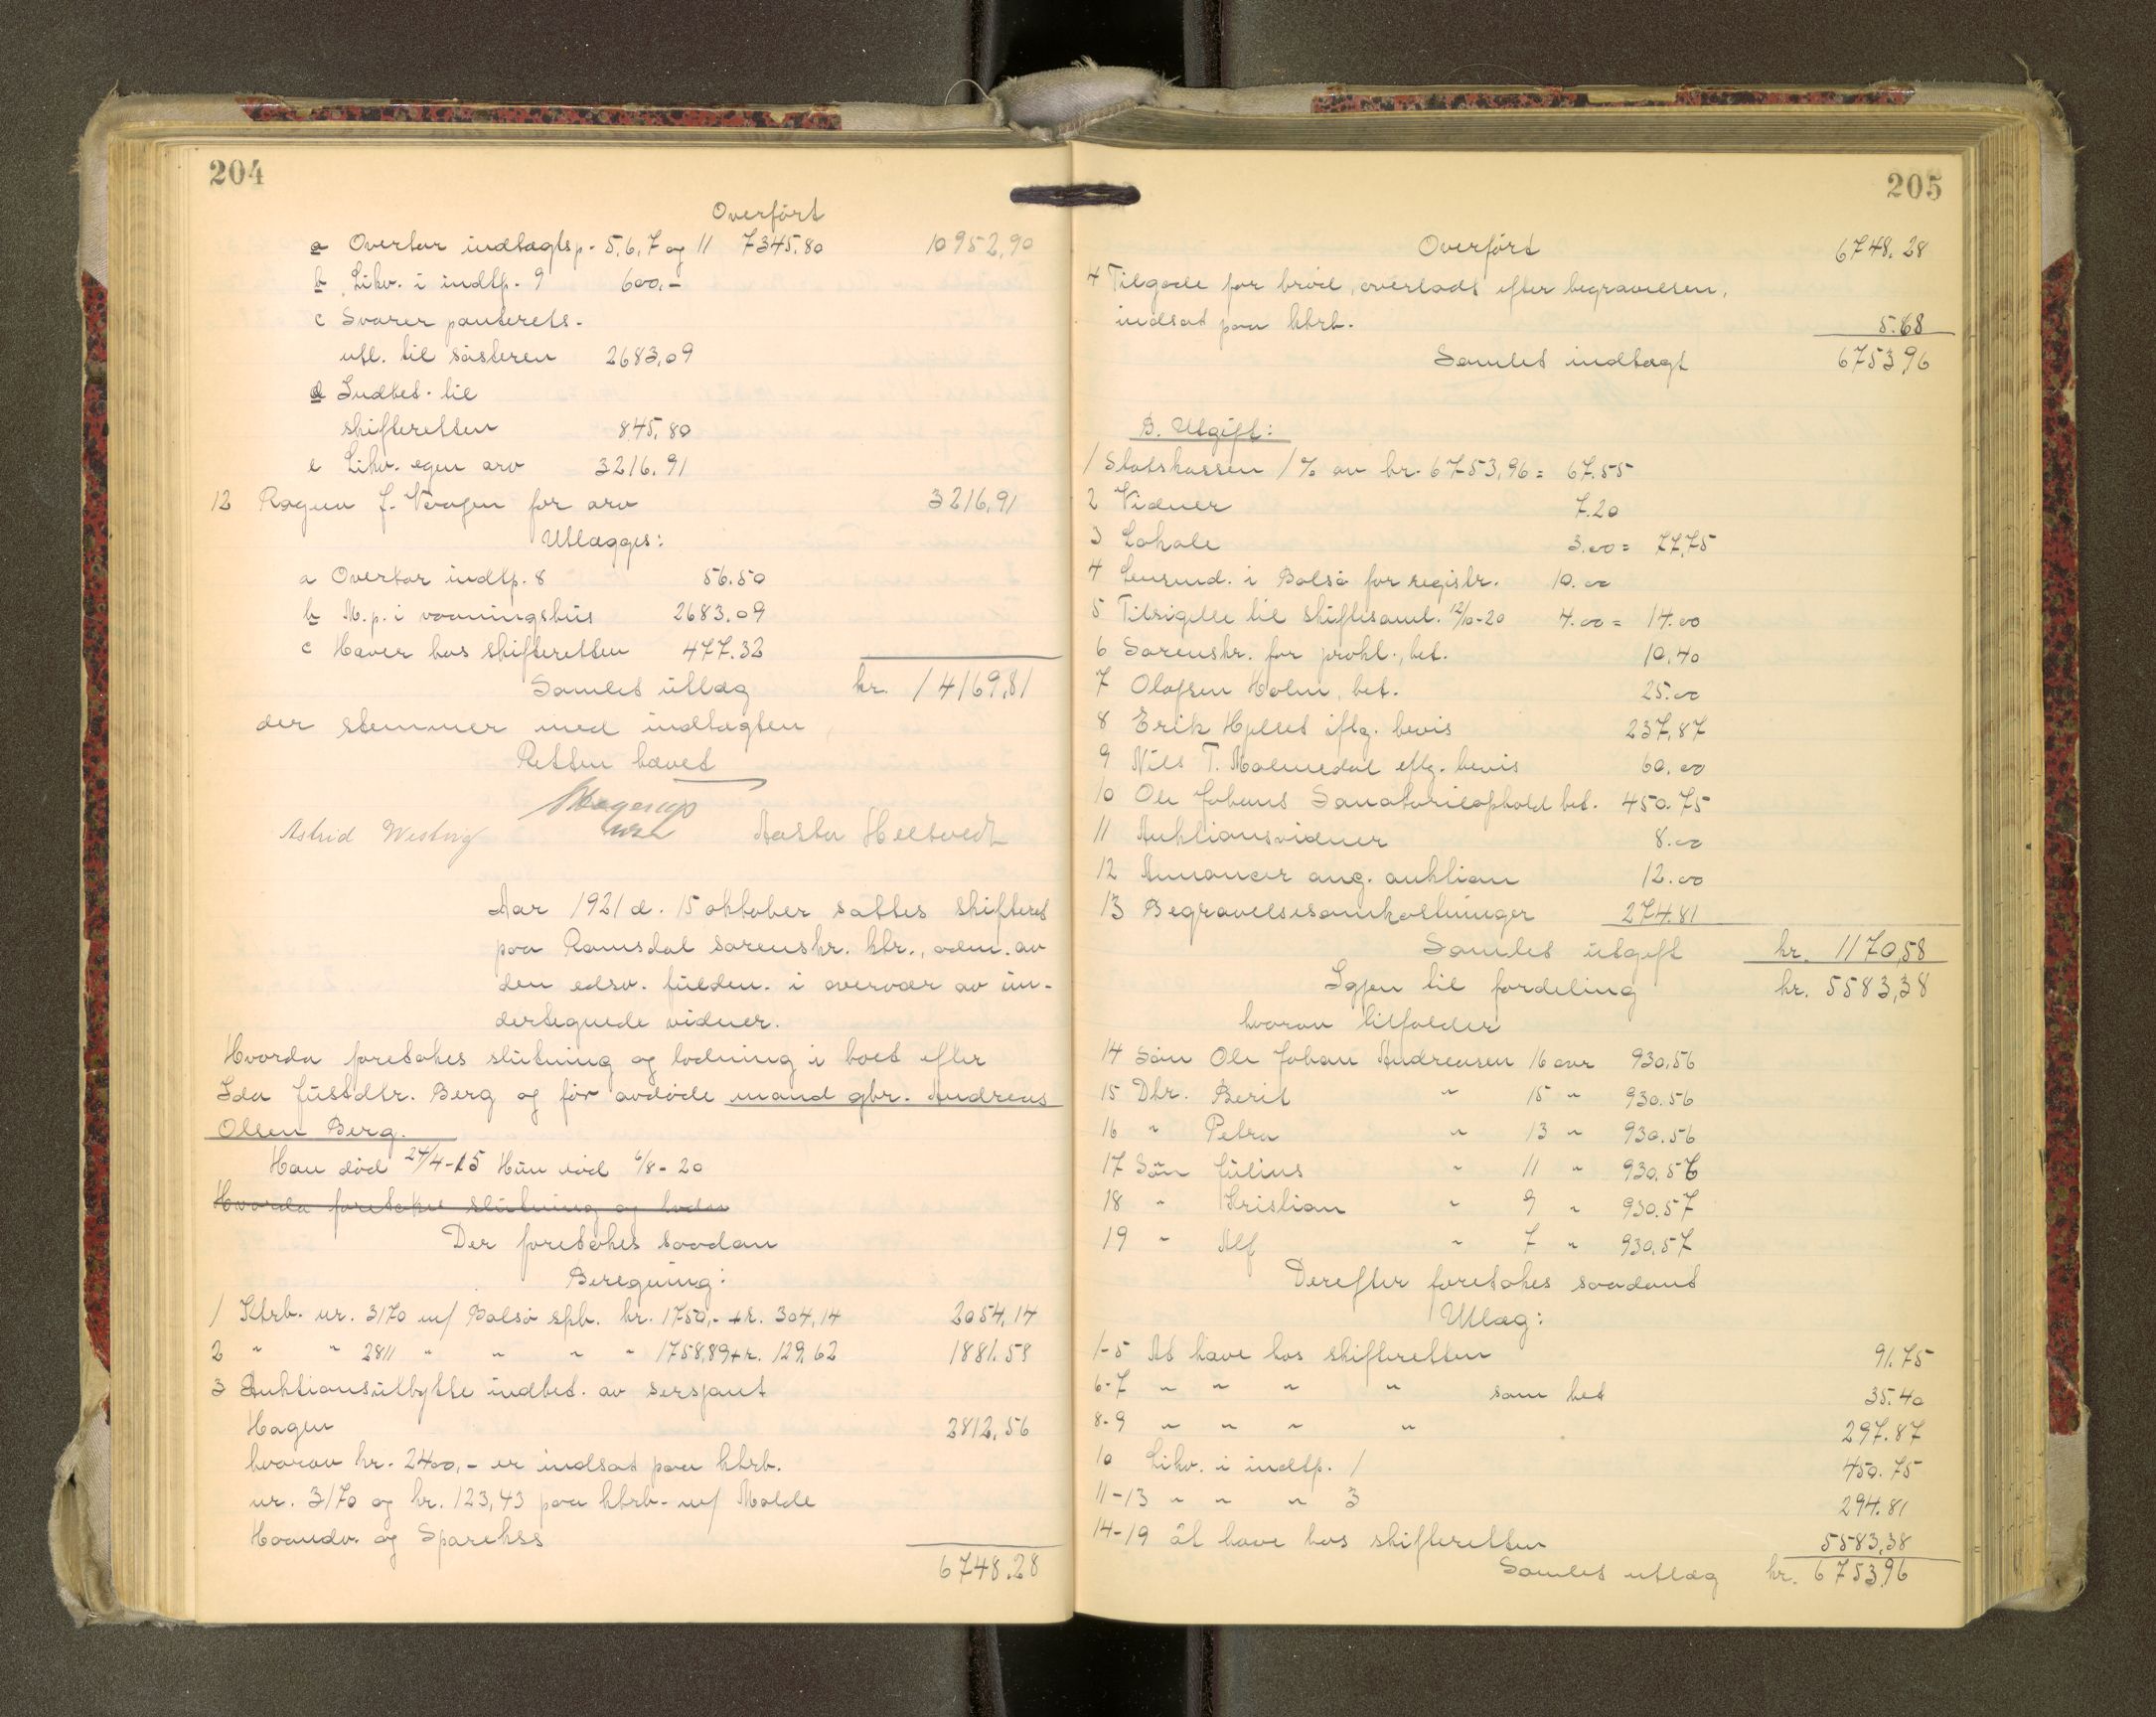 204
Overført
a Overtar indtægtsp. 5, 6, 7 og 11 7345,80 10952,90
b Likv. i indtp. 9 600,-
c Svarer panterets-
utl. til søsteren 2683,09
d Indbet. til
skifteretten 845,80
e Likv. egen arv 3216,91
12 Ragna J. Vaagen for arv 3216,91
Utlægges:
a Overtar indtp. 8 56.50
b M. p. i vaaningshus 2683.09
c Haver hos skifteretten 477.32
Samlet utlæg kr. 14169,81
der stemmer med indtægten
Retten hævet
Hagerup
Astrid Westvig Aasta Heltvedt
Aar 1921 d. 15 oktober sattes skifteret
paa Romsdal sorenskr. ktr., adm. av
den edsv. fuldm. i overvær av un-
dertegnede vidner.
Hvorda foretokes slutning og lodning i boet efter
Ida Justdtr. Berg og før avdøde mand gbr. Andreas
Olsen Berg.
Han død 24/4-15 Hun død 6/8-20
Hvorda foretokes slutning og lodn
Der foretokes saadan
Beregning:
1 Ktrb. nr. 3170 m/ Bolsø spb. kr. 1750,- + r. 304,14 2054,14
2 " " 2811 " " " " 1758,89 + r. 129,62 1881.58
3 Auktionsutbytte indbet. av sersjant
Hagen 2812,56
hvorav kr. 2400,- er indsat paa ktrb.
nr. 3170 og kr. 123,43 paa ktrb. m/ Molde
Haandv. og Sparekss
6748.28
205
Overført 6748.28
4 Tilgode for brød, overlatt efter begravelsen,
indsat paa ktrb. 5.68
Samlet indtægt 6753,96
B. Utgift:
1 Statskassen 1% av kr. 6753,96 = 67.55
2 Vidner 7.20
3 Lokale 3.00 = 77,75
4 Lensmd. i Bolsø for registr. 10.00
5 Tilsigelse til skiftesaml. 12/10-20 4.00 = 14.00
6 Sorenskr. for prokl., bet. 10,40
7 Olafsen Holm, bet. 25.00
8 Erik Hjelset iflg. bevis 237,87
9 Nils T. Malmedal eflg. bevis 60,00
10 Ole Johans Sanatorieophold bet. 450.75
11 Auktionsvidner 8.00
12 Annoncer ang. auktion 12.00
13 Begravelsesomkostninger 274.81
Samlet utgift kr. 1170,58
Igjen til fordeling kr. 5583,38
hvorav tilfalder
14 Søn Ole Johan Andreasen 16 aar 930,56
15 Dtr. Berit " 15 " 930.56
16 " Petra " 13 " 930.56
17 Søn Julius " 11 " 930.56
18 " Kristian " 9 " 930.57
19 " Alf " 7 " 930.57
Derefter foretokes saadant
Utlæg:
1-5 At have hos skifteretten 91.75
6-7 " " " " som bet 35.40
8-9 " " " " 297.87
10 Likv. i indtp. 1 450.75
11-13 " " " 3 294.81
14-19 at have hos skifteretten 5583,38
Samlet utlæg kr. 6753,96